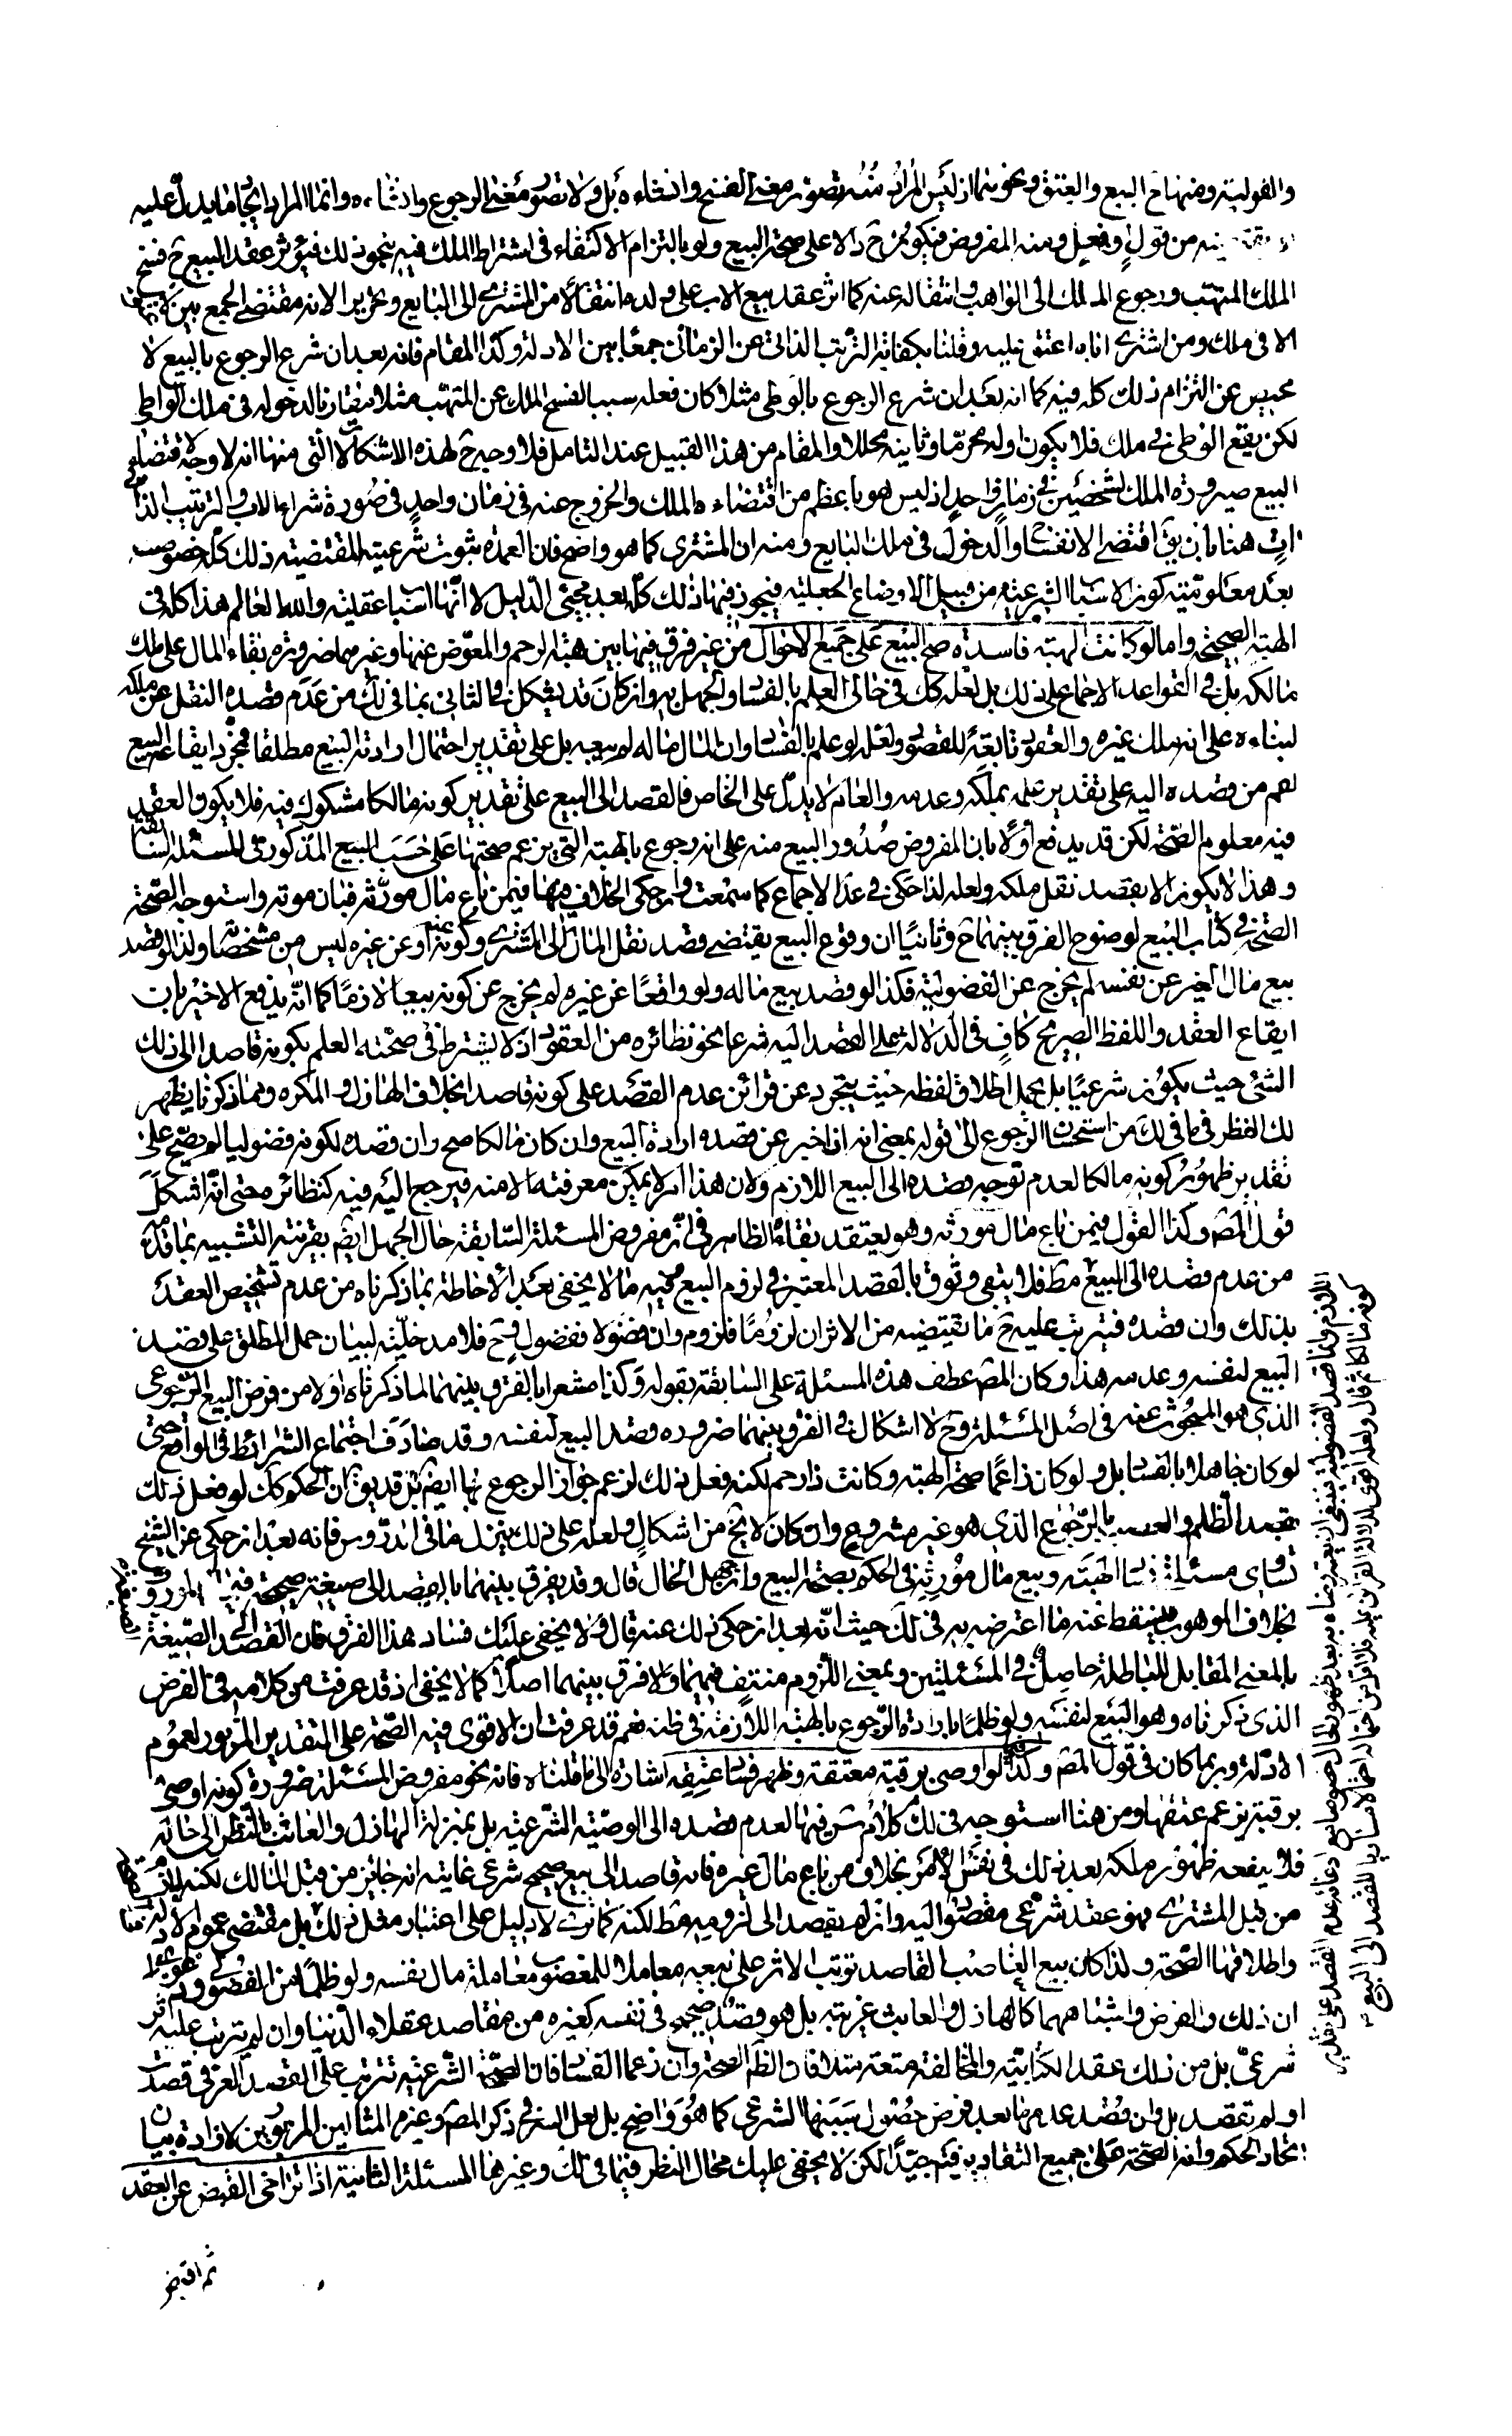 والقولية ومنها ح البيع والعتق ونحوهما اذ ليس المراد منه تصور معنى الفسخ وانشاءه بل ولا تصور معنى الرجوع وانشاءه وانما المراد ايجاد ما يدل عليه
من قول او فعل ومنه المفروض فيكون ح دالا على صحة البيع ولو بالتزام الاكتفاء في اشتراط الملك فيه بنحو ذلك فيؤثر عقد البيع ح فسخ
الملك المتهب ورجوع الملك الى الواهب وانتقاله عنه كما اثر عقد بيع الاب على ولده انتقالا من المشتري الى البايع وتحريرا لانه مقتضى الجمع بين
الا في ملك ومن اشترى اباه اعتق عليه وقلنا بكفاية الترتب الذاتي عن الزماني جمعا بين الادلة وكذا المقام فانه بعد ان شرع الرجوع بالبيع لا
محيص عن التزام ذلك كله فيه كما انه بعد ان شرع الرجوع بالوطي مثلا كان فعله سببا لفسخ الملك عن المتهب مثلا مقارنا لدخوله في ملك الواطي
لكن يقع الوطي في ملك فلا يكون اوله محرما وثانيه محللا والمقام من هذا القبيل عند التامل فلا وجه ح لهذه الاشكالات التي منها انه لا وجه لاقتضاء
البيع صيرورة الملك لشخصين في زمان واحد اذ ليس هو باعظم من اقتضاءه الملك والخروج عنه في زمان واحد في صورة شراء الاب والترتيب الذاتي
ات هنا بان يق اقتضى الانفساخ والدخول في ملك البايع ومنه ان المشتري كما هو واضح فان العمدة ثبوت شرعيته المقتضية ذلك كله خصوصا
بعد معلومية كون الاسباب الشرعية من قبيل الاوضاع الجعلية فيجوز فيها ذلك كله بعد مجيئ الدليل لا انها اسباب عقلية والله العالم هذا كله في
الهبة الصحيحة واما لو كانت الهبة فاسدة صح البيع على جميع الاحوال من غير فرق فيها بين هبة الرحم والمعوض عنها وغيرهما ضرورة بقاء المال على ملك
مالكه بل في القواعد الاجماع على ذلك بل لعله كك في حالى العلم بالفساد والجهل به وان كان قد يشكل في الثاني بما في لك من عدم قصده النقل عن ملكه
لبناءه على انه ملك غيره والعقود تابعة للقصود ولعله لو علم بالفساد وان المال ماله لم يبعه بل على تقدير احتمال ارادته البيع مطلقا فمجرد ايقاعه البيع
اعم من قصده اليه على تقدير علمه بملكه وعدمه والعام لا يدل على الخاص فالقصد الى البيع على تقدير كونه مالكا مشكوك فيه فلا يكون العقد
فيه معلوم الصحة لكن قد يدفع اولا بان المفروض صدور البيع منه على انه رجوع بالهبة التي يزعم صحتها على حسب البيع المذكور في المسئلة السابقة
وهذا لا يكون الا بقصد نقل ملكه ولعله لذا حكى في عد الاجماع كما سمعت وان حكى الخلاف فيها فيمن باع مال مورثه فبان موته واستوجه الصحة
الصحة في كتاب البيع لوضوح الفرق بينهما ح وثانيا ان وقوع البيع يقتضى قصد نقل المال الى المشتري وكونه عنه او عن غيره ليس من مشخصاته ولذا لو قصد
بيع مال الغير عن نفسه لم يخرج عن الفضولية فكذا لو قصد بيع ماله ولو واقعا عن غيره لم يخرج عن كونه بيعا لازما كما انه يدفع الاخير بان
ايقاع العقد واللفظ الصريح كاف في الدلالة على القصد اليه شرعا نحو نظائره من العقود اذ لا يشترط في صحته العلم بكونه قاصدا الى ذلك
الشئ حيث يكون شرعيا بل يحمل اطلاق لفظه حيث يتجرد عن قرائن عدم القصد على كونه قاصدا بخلاف الهازل والمكره ومما ذكرنا يظهر
لك النظر في ما في لك من استحسان الرجوع الى قوله بمعنى انه ان اخبر عن قصده ارادة البيع وان كان مالكا صح وان قصده لكونه فضوليا لم يصح على
تقدير ظهور كونه مالكا لعدم توجه قصده الى البيع اللازم ولان هذا امر لا يمكن معرفته الا منه فيرجع اليه فيه كنظائره حتى انه اشكل
قول المص وكذا القول فيمن باع مال مورثه وهو يعتقد بقاءه الظاهر في ان مفروض المسئلة السابقة حال الجهل ايضا بقرينة التشبيه بما
من عدم قصده الى البيع مط فلا يبقى وثوق بالقصد المعتبر في لزوم البيع فيه ما لا يخفى بعد الاحاطة بما ذكرناه من عدم تشخيص العقد
بذلك وان قصده فيترتب عليه ح ما تقتضيه من الاثر ان لزوما فلزوم وان فضولا ففضول وح فلا مدخلية لبيان حمل المطلق على قصد
البيع لنفسه وعدمه هذا وكان المص عطف هذه المسئلة على السابقة بقوله وكذا مشعرا بالفرق بينهما لما ذكرناه اولا من فرض البيع الرجوعي
الذي هو المبحوث عنه في اصل المسئلة وح لا اشكال في الفرق بينهما ضرورة قصد البيع لنفسه وقد صادف اجتماع الشرائط في الواقع حتى
لو كان جاهلا بالفساد بل ولو كان زاعما صحة الهبة وكانت ذا رحم لكنه فعل ذلك لزعم جواز الرجوع بها ايضا بل قد يق ان الحكم كك لو فعل ذلك
بقصد الظلم والغصب بالرجوع الذي هو غير مشروع وان كان لا يخ من اشكال ولعله على ذلك ينزل ما في الدروس فانه بعد ان حكى عن الشيخ
تساوى مسئلة فساد الهبة وبيع مال مورثه في الحكم بصحة البيع وان جهل الحال قال وقد يفرق بينهما بالقصد الى صيغة صحيحة في
بخلاف الموهوب فيسقط عنه ما اعترضه به في لك حيث انه بعد ان حكى ذلك عنه قال ولا يخفى عليك فساد هذا الفرق فان القصد الى الصيغة
بالمعنى المقابل للباطلة حاصل في المسئلتين وبمعنى اللزوم منتف فيهما ولا فرق بينهما اصلا كما لا يخفى اذ قد عرفت من كلامه في الفرض
الذي ذكرناه وهو البيع لنفسه ولو ظلما بارادة الرجوع بالهبة اللازمة في ظنه نعم قد عرفت ان الاقوى فيه الصحة على التقدير المزبور لعموم
الادلة وربما كان في قول المص وكذا لو اوصى برقبة معتقة وظهر فساد عتقه اشارة الى ما قلناه فانه نحو مفروض المسئلة ضرورة كونه اوصى
برقبة يزعم عتقها ومن هنا استوجه في لك كلام ش فيها لعدم قصده الى الوصية الشرعية بل بمنزلة الهازل والعابث بالنظر الى حاله
فلا ينفعه ظهور ملكه بعد ذلك في نفس الامر بخلاف من باع مال غيره فانه قاصد الى بيع صحيح شرعى غايته انه جائز من قبل المالك لكنه لازم
من قبل المشتري فهو عقد شرعى مقصود اليه وان لم يقصد الى لزومه مط لكنه كما ترى لا دليل على اعتبار مثل ذلك بل مقتضى عموم الادلة
واطلاقها الصحة ولذا كان بيع الغاصب القاصد ترتب الاثر على بيعه معاملا للمغصوب معاملة مال نفسه ولو ظلما من الفضولي
ان ذلك والفرض واشباههما كالهازل والعابث غريبة بل هو قصد صحيح في نفسه كغيره من مقاصد عقلاء الدنيا وان لم يترتب عليه اثر
شرعى بل من ذلك عقد الكتابية والمخالفة متعة الصحة وان زعما الفساد فان الصحة الشرعية تترتب على القصد العرفي قصدت
او لم تقصد بل وان قصد عدمها بعد فرض حصول سببها الشرعى كما هو واضح بل لعل السر في ذكر المص وغيره المثالين المزبورين لارادة بيان
اتحاد الحكم وانه الصحة على جميع التقادير فيتم جيدا لكن لا يخفى عليك محال النظر فيما في لك وغيرها المسئلة الثانية اذا تراخى القبض عن العقد
ثم اقبض